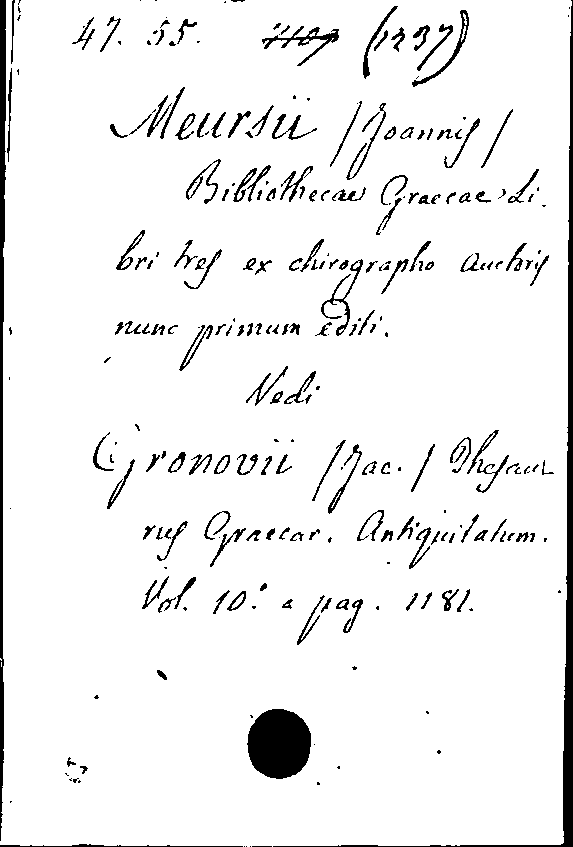 47. 55. (1237)
Meursii /Joannis/
Bibliothecae Graecae Li.
bri tres ex chirographo Auctoris
nunc primum editi.
Vedi
Gronovii /Jac./ Thesau
rus Graecar. Antiquitatum.
Vol. 10.° a pag. 1181.